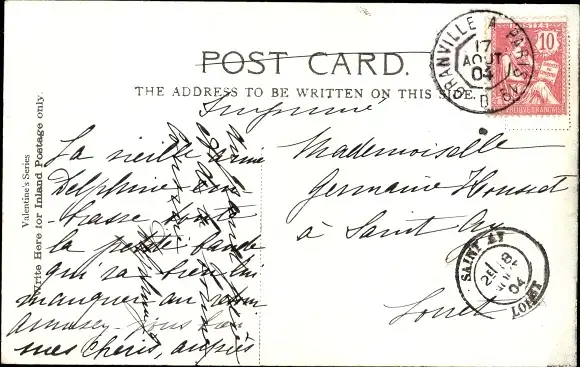 POST CARD.
THE ADDRESS TO BE WRITTEN ON THIS SIDE.
Imprimé
GRANVILLE A PARIS
17
AOUT
04
POSTES
10
RÉPUBLIQUE FRANÇAISE
Valentine's Series
Write Here for Inland Postage only.
La vieille amie
Delphine em
brasse toute
la petite bande
qui va bien lui
manquer au retour
Amusez-vous bien
mes chéris, auprès
Mademoiselle
Germaine Housset
à Saint Ay
Loiret
SAINT AY
2E 18
04
LOIRET